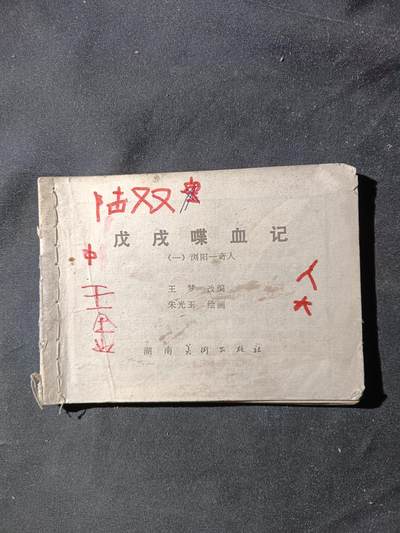 陆双
戊戌喋血记
（一）浏阳一奇人
王梦 改编
朱光玉 绘画
湖南美术出版社
中
王
人
大